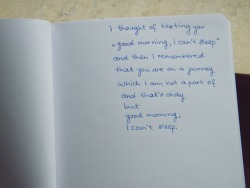 I thought of texting you
„good morning, I can't sleep"
and then I remembered
that you are on a journey
which I am not a part of
and that's okay
but
good morning,
I can't sleep.